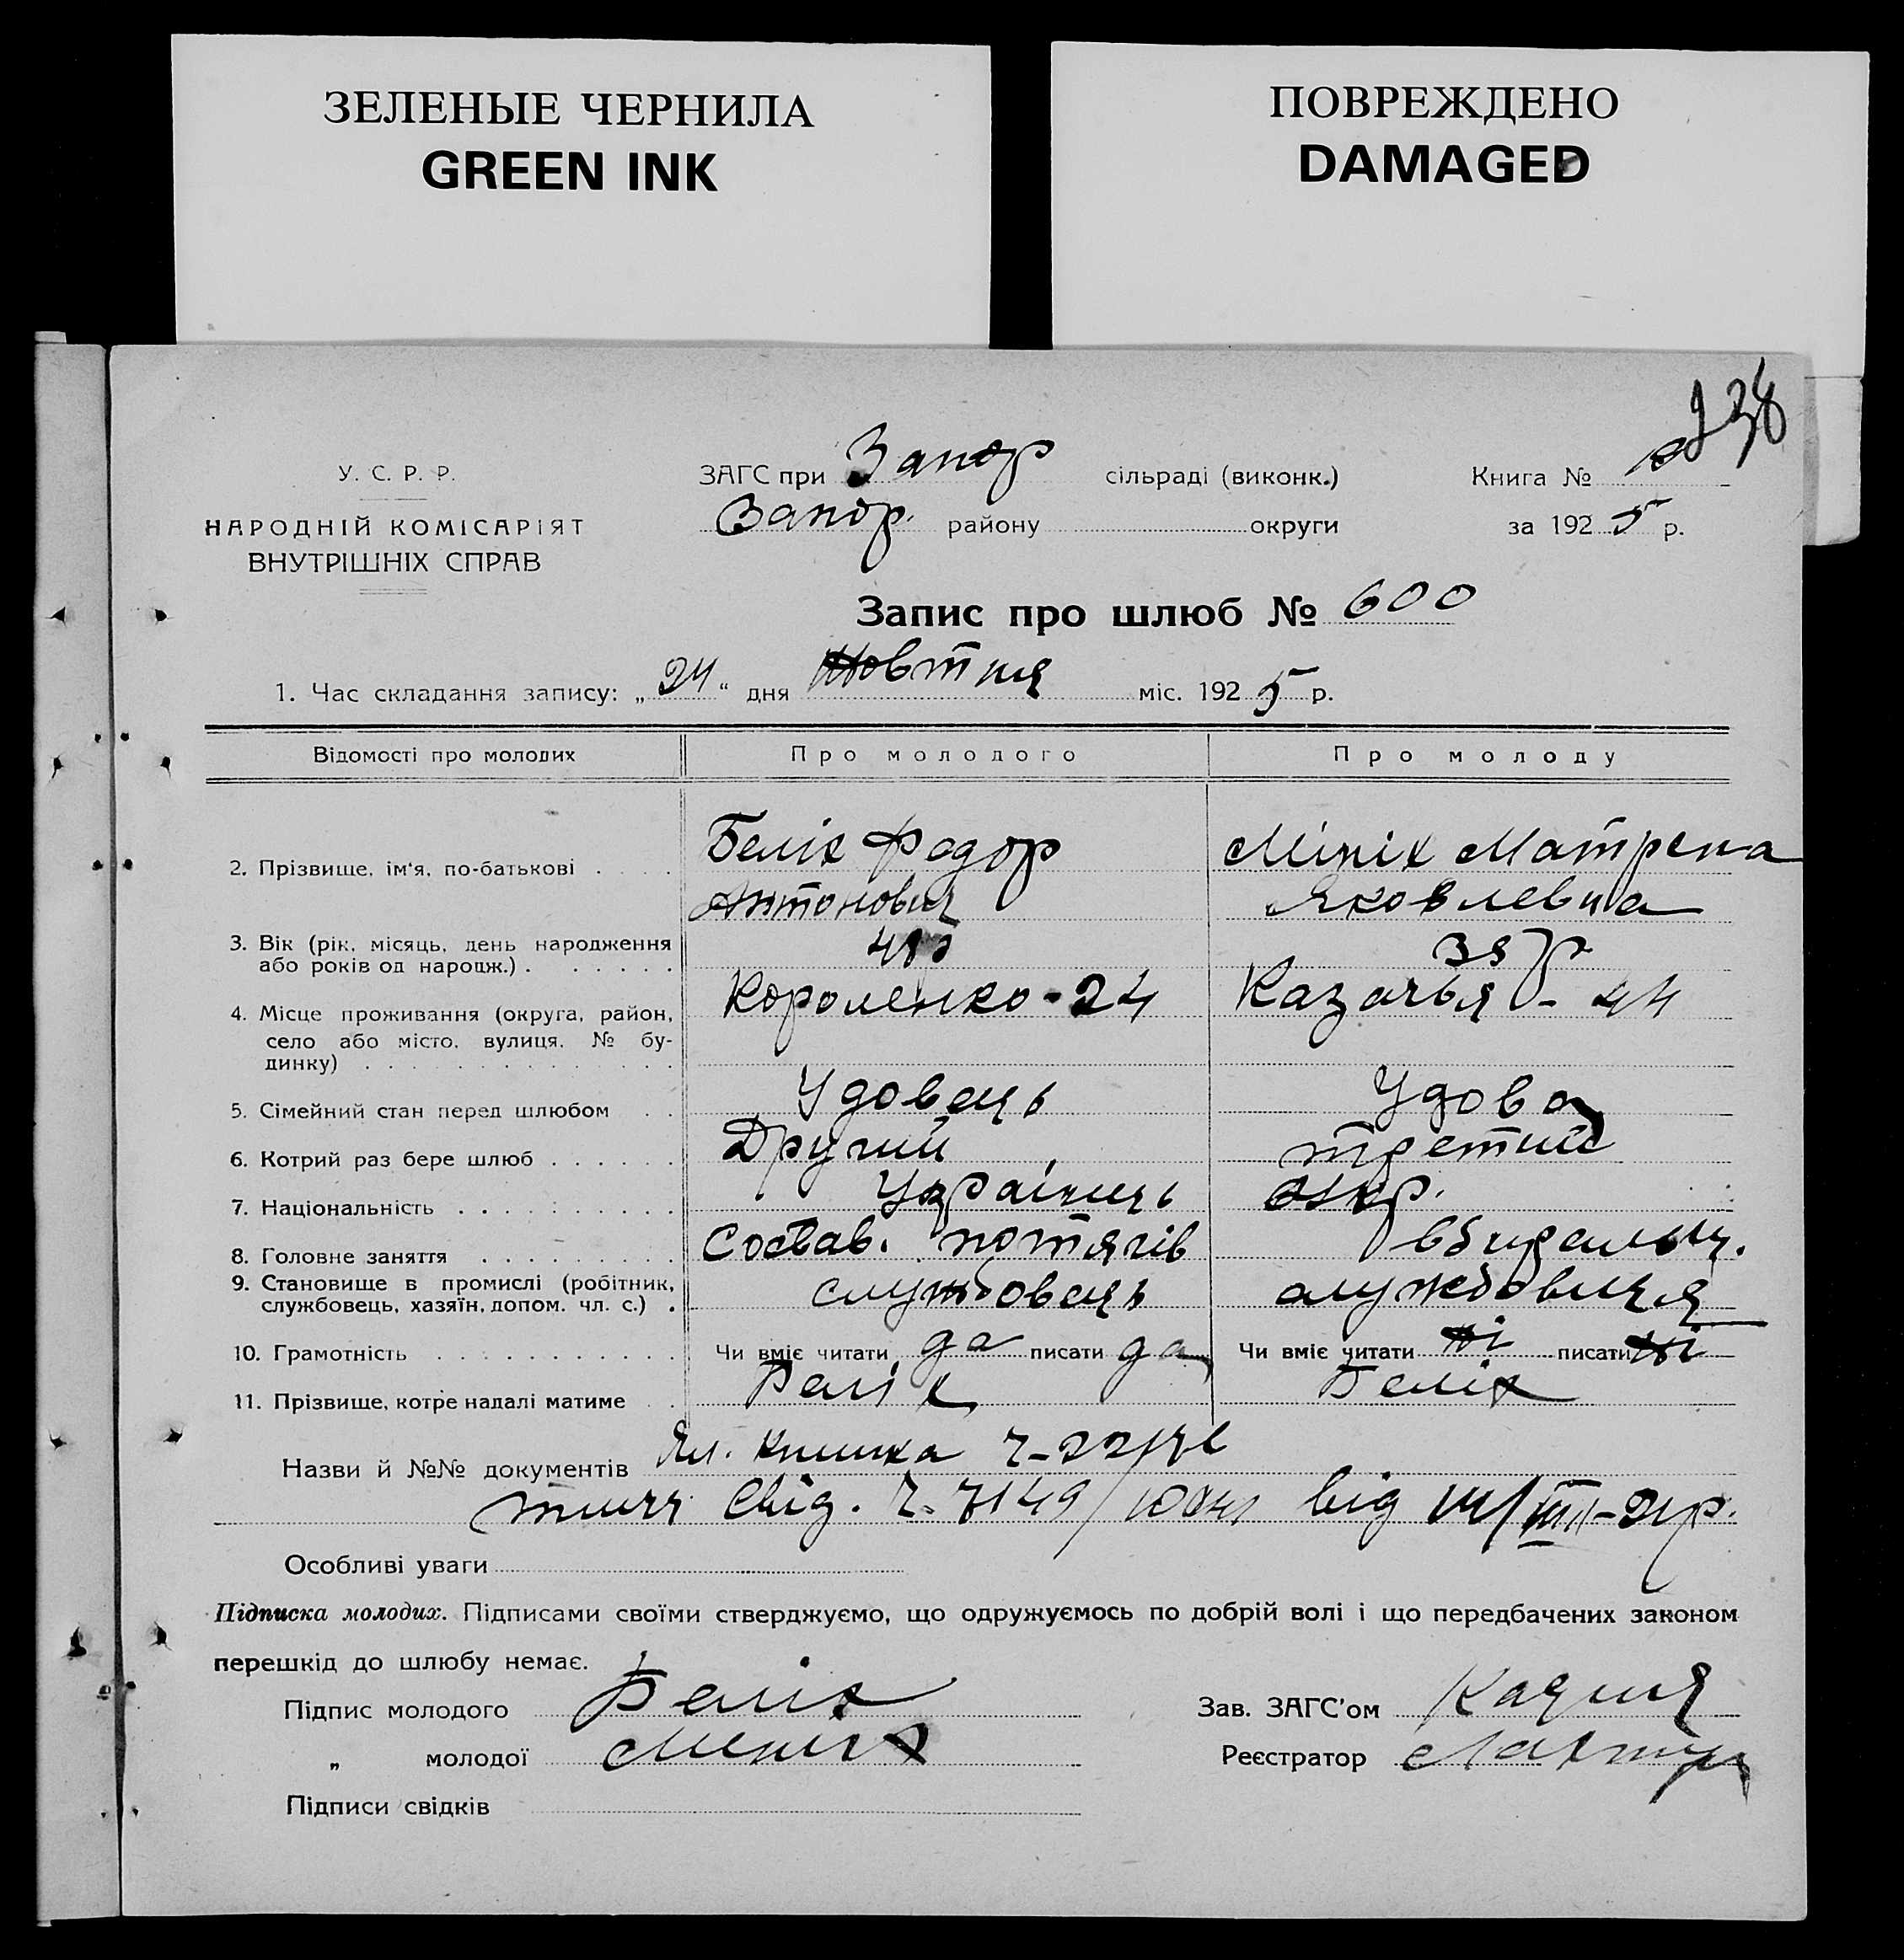 ЗЕЛЕНЫЕ ЧЕРНИЛА
GREEN INK
ПОВРЕЖДЕНО
DAMAGED
238
У. С. Р. Р.
НАРОДНІЙ КОМІСАРІЯТ
ВНУТРІШНІХ СПРАВ
ЗАГС при Запор сільраді (виконк.)
Запор. району округи
Книга №
за 1925 р.
Запис про шлюб № 600
1. Час складання запису: „24“ дня Жовтня міс. 1925 р.
Відомості про молодих Про молодого Про молоду
2. Прізвище, ім'я, по-батькові . . . . Беліх Федор Мініх Матрена
Антонович Яковлевна
3. Вік (рік, місяць, день народження
або років од нарощж.) . . . . . . 38 р
4. Місце проживання (округа, район, Короленко - 24 Казачья - 44
село або місто, вулиця, № бу-
динку) . . . . . . . . . . . . . .
5. Сімейний стан перед шлюбом . . Удовець Удова
6. Котрий раз бере шлюб . . . . . . Другий третий
7. Національність . . . . . . . . . . Українець Укр.
8. Головне заняття . . . . . . . . . Состав. потягів
9. Становище в промислі (робітник,
службовець, хазяїн, допом. чл. с.) . службовець службовиця
10. Грамотність . . . . . . . . . . . Чи вміє читати да писати да Чи вміє читати ні писати ні
11. Прізвище, котре надалі матиме . . Беліх Беліх
Назви й №№ документів книжка
Свід. Ч. 7149/ від
Особливі уваги
Підписка молодих. Підписами своїми стверджуємо, що одружуємось по добрій волі і що передбачених законом
перешкід до шлюбу немає.
Підпис молодого Беліх
„ молодої Мениих
Підписи свідків
Зав. ЗАГС'ом
Реєстратор